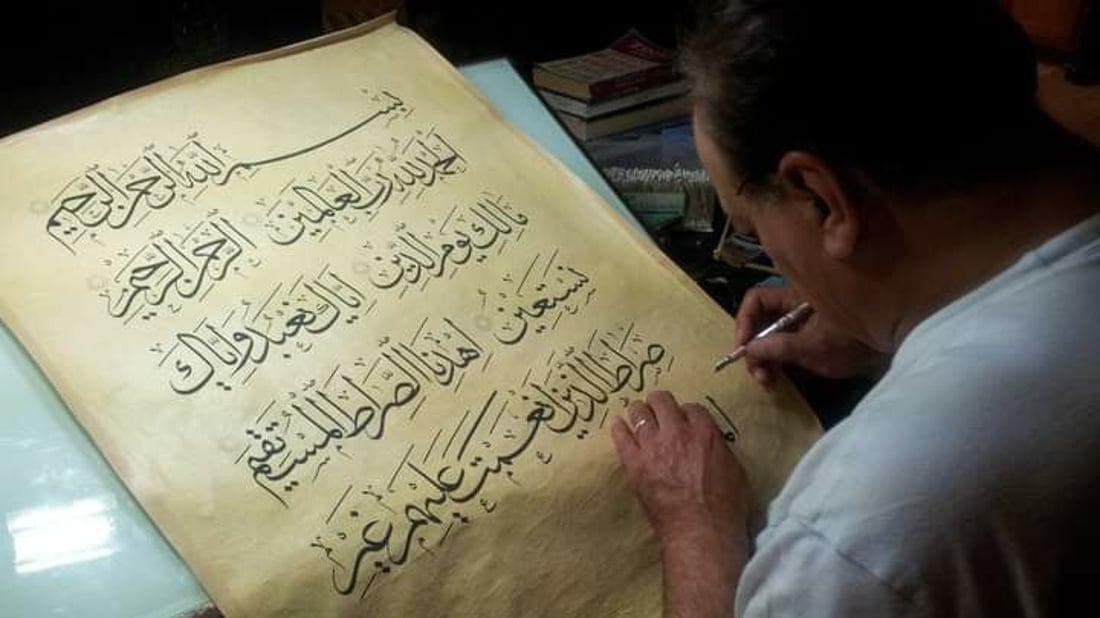 بِسْمِ اللَّهِ الرَّحْمَنِ الرَّحِيمِ
الْحَمْدُ لِلَّهِ رَبِّ الْعَالَمِينَ الرَّحْمَنِ الرَّحِيمِ
مَالِكِ يَوْمِ الدِّينِ إِيَّاكَ نَعْبُدُ وَإِيَّاكَ
نَسْتَعِينُ اهْدِنَا الصِّرَاطَ الْمُسْتَقِيمَ
صِرَاطَ الَّذِينَ أَنْعَمْتَ عَلَيْهِمْ غَيْرِ